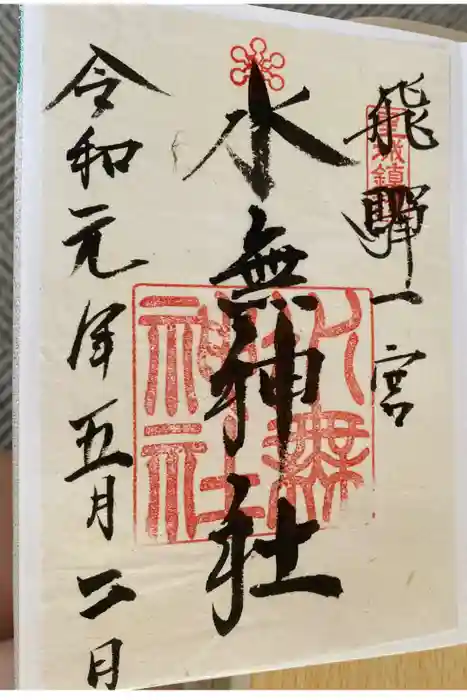 飛騨一宮
皇城鎮
水無神社
水無
神社
令和元年五月二日